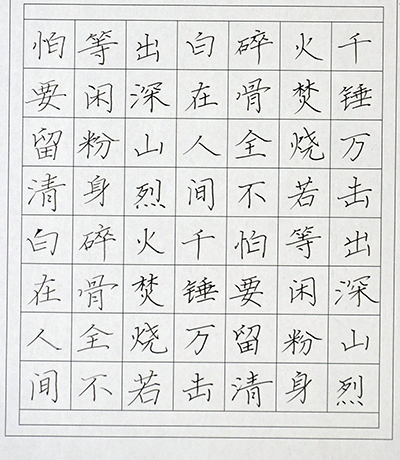 千锤万击出深山烈
火焚烧若等闲粉身
碎骨全不怕要留清
白在人间千锤万击
出深山烈火焚烧若
等闲粉身碎骨全不
怕要留清白在人间